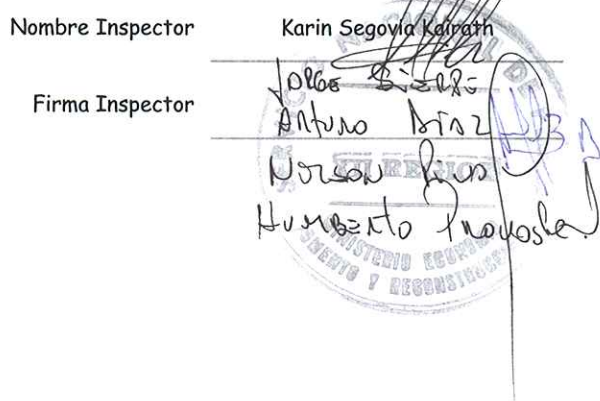 Nombre Inspector Karin Segovia Kairath
Firma Inspector
Jorge Sierpe
Arturo Diaz
Nelson
Humberto Provoste
XII REGION
MINISTERIO ECONOMIA
FOMENTO Y RECONSTRUCCION